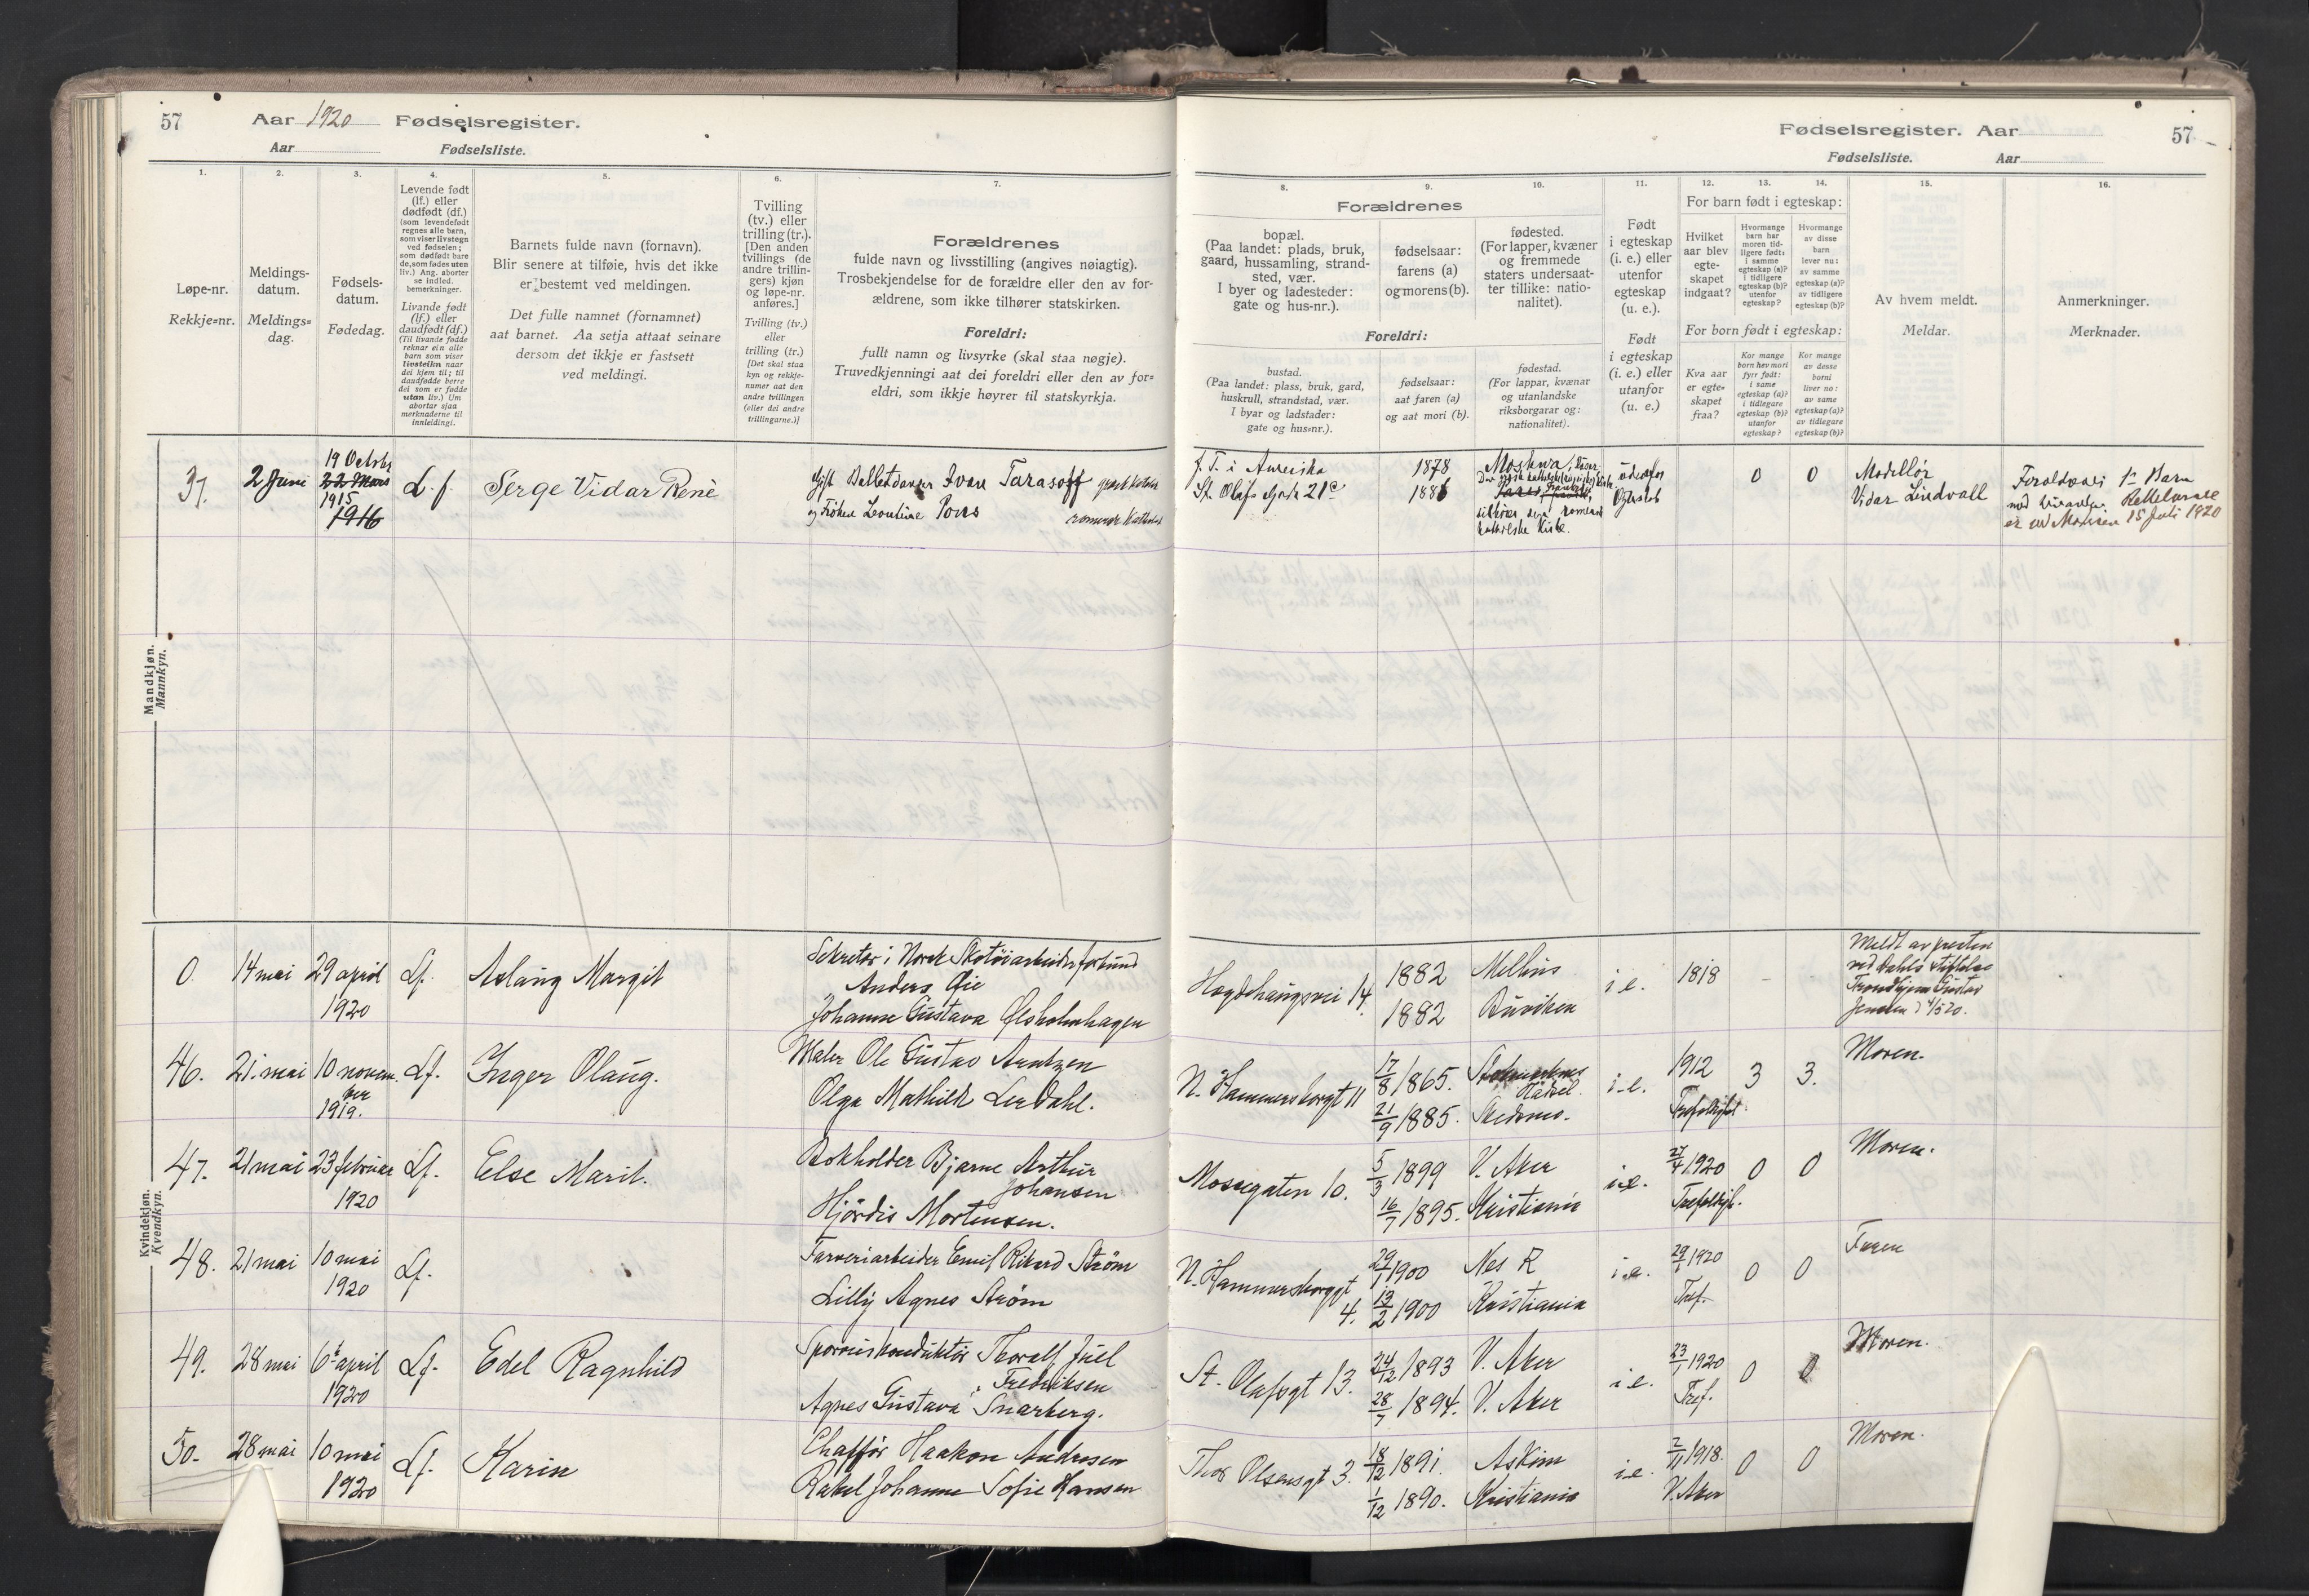 57
Aar 1920 Fødselsregister.
Aar
Fødselsliste.
1.
2.
3.
4.
5.
6.
7.
Løpe-nr.
Rekkje=nr.
Meldings-
datum.
Meldings=
dag.
Fødsels-
datum.
Fødedag.
Levende født
(lf.) eller
dødfødt (df.)
(som levendefødt
regnes alle barn,
som viser livstegn
ved fødselen;
som dødfødt bare
de, som fødes uten
liv.) Ang. aborter
se indled.
bemerkninger.
Livande født
(lf.) eller
daudfødt (df.)
(Til livande fødde
reknar ein alle
barn som viser
livsteikn naar
dei kjem til; til
daudfødde berre
dei som er fødde
utan liv.) Um
abortar sjaa
merknaderne til
innleidingi.
Barnets fulde navn (fornavn).
Blir senere at tilføie, hvis det ikke
er bestemt ved meldingen.
Det fulle namnet (fornamnet)
aat barnet. Aa setja attaat seinare
dersom det ikkje er fastsett
ved meldingi.
Tvilling
(tv.) eller
trilling (tr.).
[Den anden
tvillings (de
andre trillin-
gers) kjøn
og løpe-nr.
anføres.]
Tvilling (tv.)
eller
trilling (tr.)
[Det skal staa
kyn og rekkje-
numer aat den
andre tvillingen
(eller dei andre
trillingarne.)]
Forældrenes
fulde navn og livsstilling (angives nøiagtig).
Trosbekjendelse for de forældre eller den av for-
ældrene, som ikke tilhører statskirken.
Foreldri:
fullt namn og livsyrke (skal staa nøgje).
Truvedkjenningi aat dei foreldri eller den av for=
eldri, som ikkje høyrer til statskyrkja.
Fødselsregister. Aar
57
Fødselsliste.
Aar
8.
9.
10.
11.
12.
13.
14.
15.
16.
Forældrenes
bopæl.
(Paa landet: plads, bruk,
gaard, hussamling, strand-
sted, vær.
I byer og ladesteder:
gate og hus-nr.).
fødselsaar:
farens (a)
og morens (b).
fødested.
(For lapper, kvæner
og fremmede
staters undersaat-
ter tillike: natio-
nalitet).
Foreldri:
bustad.
(Paa landet: plass, bruk, gard,
huskrull, strandstad, vær.
I byar og ladstader:
gate og hus=nr.).
fødselsaar:
aat faren (a)
og aat mori (b).
fødestad.
(For lappar, kvænar
og utanlandske
riksborgarar og:
nationalitet).
Født
i egteskap
(i. e.) eller
utenfor
egteskap
(u. e.).
Født
i egteskap
(i. e.) eller
utanfor
(u. e.)
For barn født i egteskap:
Hvilket
aar blev
egte-
skapet
indgaat?
Hvormange
barn har
moren tid-
ligere født:
i samme
egteskap (a)?
i tidligere
egteskap (b)?
utenfor
egteskap?
Hvormange
av disse
barn
lever nu:
av samme
egteskap (a)?
av tidligere
egteskap (b)?
For born født i egteskap:
Kva aar
er egte=
skapet
fraa?
Kor mange
born hev mori
fyrr født:
i same
egteskap (a)?
i tidlegare
egteskap (b)?
utanfor
egteskap?
Kor mange
av desse
borni
liver no:
av same
egteskap (a)?
av tidlegare
egteskap (b)?
Av hvem meldt.
Meldar.
Anmerkninger.
Merknader.
Mandkjøn.
Mannkyn.
37. 2 Juni 19 Octobr 22 Mars 1915 1916 L. f. Serge Vidar Renè
Gift Balletdanser Ivan Tarasoff
og Frøken Leontine Pons
J. T. i Amerika 1878 Moskwa
St. Olafs Gade 21c 1886
0 0 Modellør
Vidar Lindvall
er av Moren 15 Juli 1920
Kvindekjøn.
Kvendkyn.
0. 14 mai 29 april 1920 Lf. Aslaug Margit
Sekretær i Norsk Skotøiarbeiderforbund
Anders Øie
Johanne Gustava Ølsholmhagen
Hægdehaugsvei 14. 1882 Melhus i e. 1818
1882 Buviken
Meldt av presten
ved Dahls stiftelse
46. 21. mai 10 november 1919. Lf. Inger Olaug.
Maler Ole Gustav Arntzen
Olga Mathilde Lerdahl.
N. Hammersborgt 11 17/8 1865.
21/9 1885. Skedsmo.
i e. 1912 3 3. Moren.
47. 21 mai 23 februar 1920 Lf. Else Marit.
Bokholder Bjarne Arthur
Johansen
Hjördis Mortensen.
Mossegaten 10. 5/3 1899 V. Aker
16/7 1895. Kristiania
i e. 27/4 1920 0 0 Moren.
48. 21 mai 10 mai 1920 Lf.
Farveriarbeider Emil Rikard Strøm
Lilly Agnes Strøm
N. Hammersborggt 4. 29/1 1900 Nes R
13/2 1900 Kristiania
i e. 29/1 1920 Tref. 0 0 Faren
49. 28 mai 6 april 1920 Lf. Edel Ragnhild
Sporveiskonduktør Thoralf Juel
Fredriksen
Agnes Gustava Snarberg.
St. Olafsgt 13. 24/12 1893 V. Aker
28/7 1894. V. Aker
i e. 23/1 1920 Tref. 0 0 Moren.
50. 28 mai 10 mai 1920 Lf. Karin
Chaffør Haakon Andresen
Rakel Johanne Sofie Hansen
Thor Olsensgt 3. 18/12 1891. Askim
1/12 1890. Kristiania
i e. 2/11 1918. V. Aker 0 0 Moren.